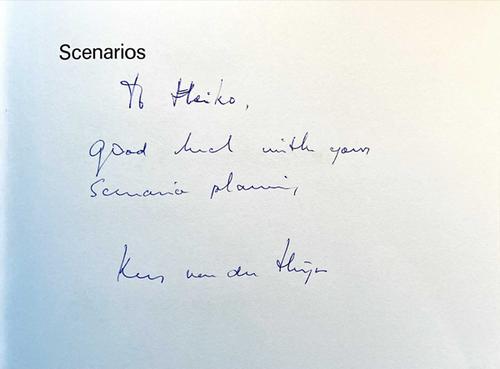 Scenarios
To Heiko,
good luck with your
Scenario planning
Kees van der Heijden